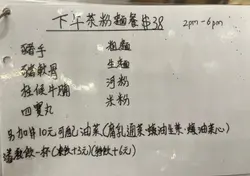 下午茶粉麵餐 $38 2pm-6pm
豬手 粗麵
豬軟骨 生麵
柱侯牛腩 河粉
四寶丸 米粉
另加$10元可配油菜(腐乳通菜、蠔油生菜、蠔油菜心)
送熱飲一杯(凍飲+3元)(特飲+6元)